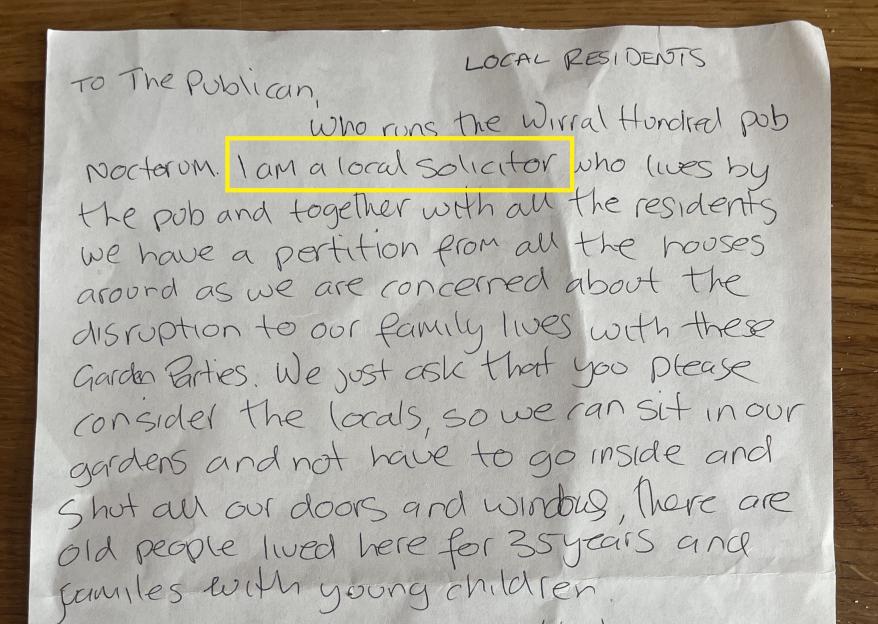 LOCAL RESIDENTS
To The Publican,
who runs the Wirral Hundred pub
Noctorum. I am a local solicitor who lives by
the pub and together with all the residents
we have a pertition from all the houses
around as we are concerned about the
disruption to our family lives with these
Garden Parties. We just ask that you please
consider the locals, so we can sit in our
gardens and not have to go inside and
shut all our doors and windows, there are
old people lived here for 35 years and
familes with young children.